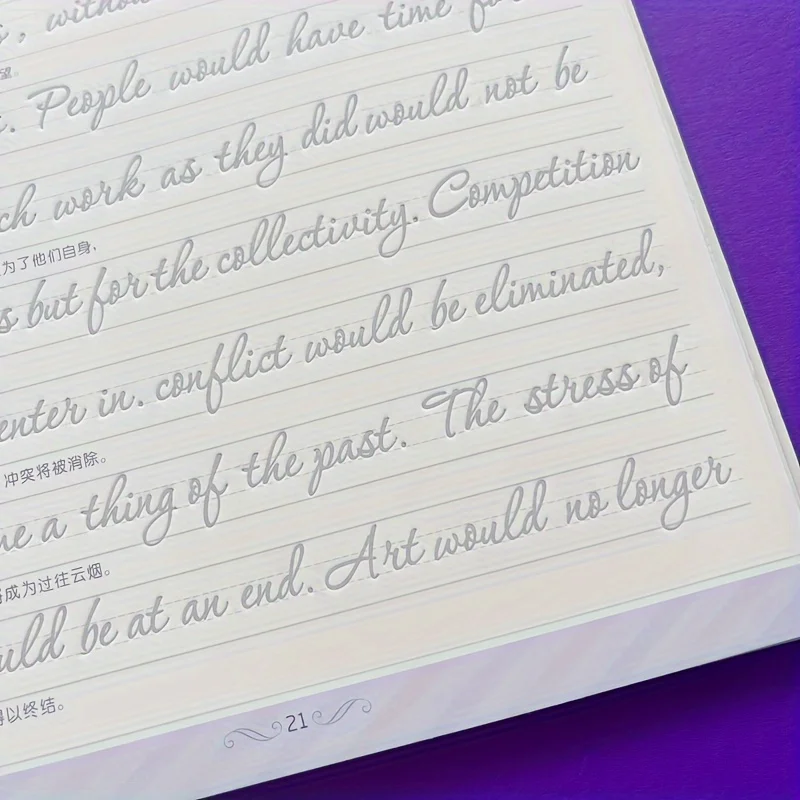 , without
望。
. People would have time for
ch work as they did would not be
为了他们自身,
s but for the collectivity. Competition
enter in. conflict would be eliminated,
冲突将被消除。
me a thing of the past. The stress of
将成为过往云烟。
uld be at an end. Art would no longer
得以终结。
21